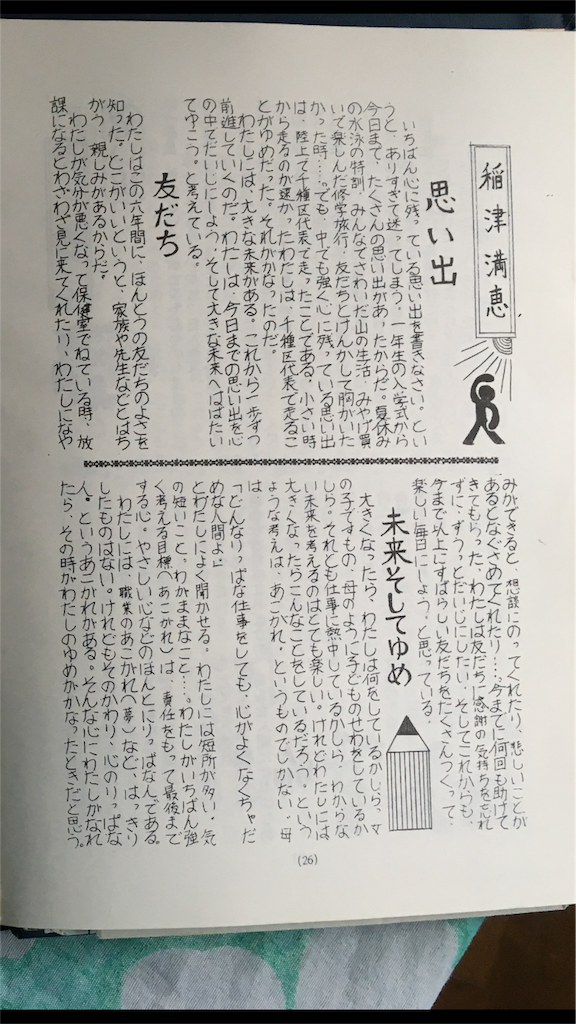 稲津満恵
思い出
いちばん心に残っている思い出を書きなさい。とい
うと、ありすぎて迷ってしまう。一年生の入学式から
今日まで、たくさんの思い出があったからだ。夏休み
の水泳の特訓、みんなでさわいだ山の生活、みやげ買
いで楽しんだ修学旅行、友だちとけんかして胸がいた
かった時……。でも、中でも強く心に残っている思い出
は、陸上で千種区代表で走ったことである。小さい時
から走るのが速かったわたしは、千種区代表で走るこ
とがゆめだった。それがかなったのだ。
わたしには、大きな未来がある。これから一歩ずつ
前進していくのだ。わたしは、今日までの思い出を心
の中でだいじにしよう。そして大きな未来へはばたい
てゆこう。と考えている。
友だち
わたしはこの六年間に、ほんとうの友だちのよさを
知った。どこがいいというと、家族や先生などとはち
がう、親しみがあるからだ。
わたしが気分が悪くなって保健室でねている時、放
課になるとわざわざ見に来てくれたり、わたしになや
みができると、想談にのってくれたり、悲しいことが
あるとなぐさめてくれたり…。今までに何回も助けて
きてもらった。わたしは友だちに感謝の気持ちを忘れ
ずに、ずうっとだいじにしたい。そしてこれからも、
今まで以上にすばらしい友だちをたくさんつくって、
楽しい毎日にしよう。と思っている。
未来そしてゆめ
大きくなったら、わたしは何をしているかしら。女
の子ですもの、母のように子どものせわをしているか
しら。それとも仕事に熱中しているかしら。わからな
い未来を考えるのはとても楽しい。けれどわたしには
大きくなったらこんなことをしているだろう。という
ような考えは、あこがれ。というものでしかない。母
は
「どんなりっぱな仕事をしても、心がよくなくちゃだ
めな人間よ。」
とわたしによく聞かせる。わたしには短所が多い。気
の短いこと、わがままなこと……。わたしがいちばん強
く考える目標へあこがれ)は、責任をもって最後まで
する心。やさしい心などのほんとにりっぱなんである。
わたしには、職業のあこがれへ夢)など、はっきり
したものはない。けれどもそのかわり、心のりっぱな
人。というあこがれがある。そんな心にわたしがなれ
たら、その時がわたしのゆめがかなったときだと思う。
(26)